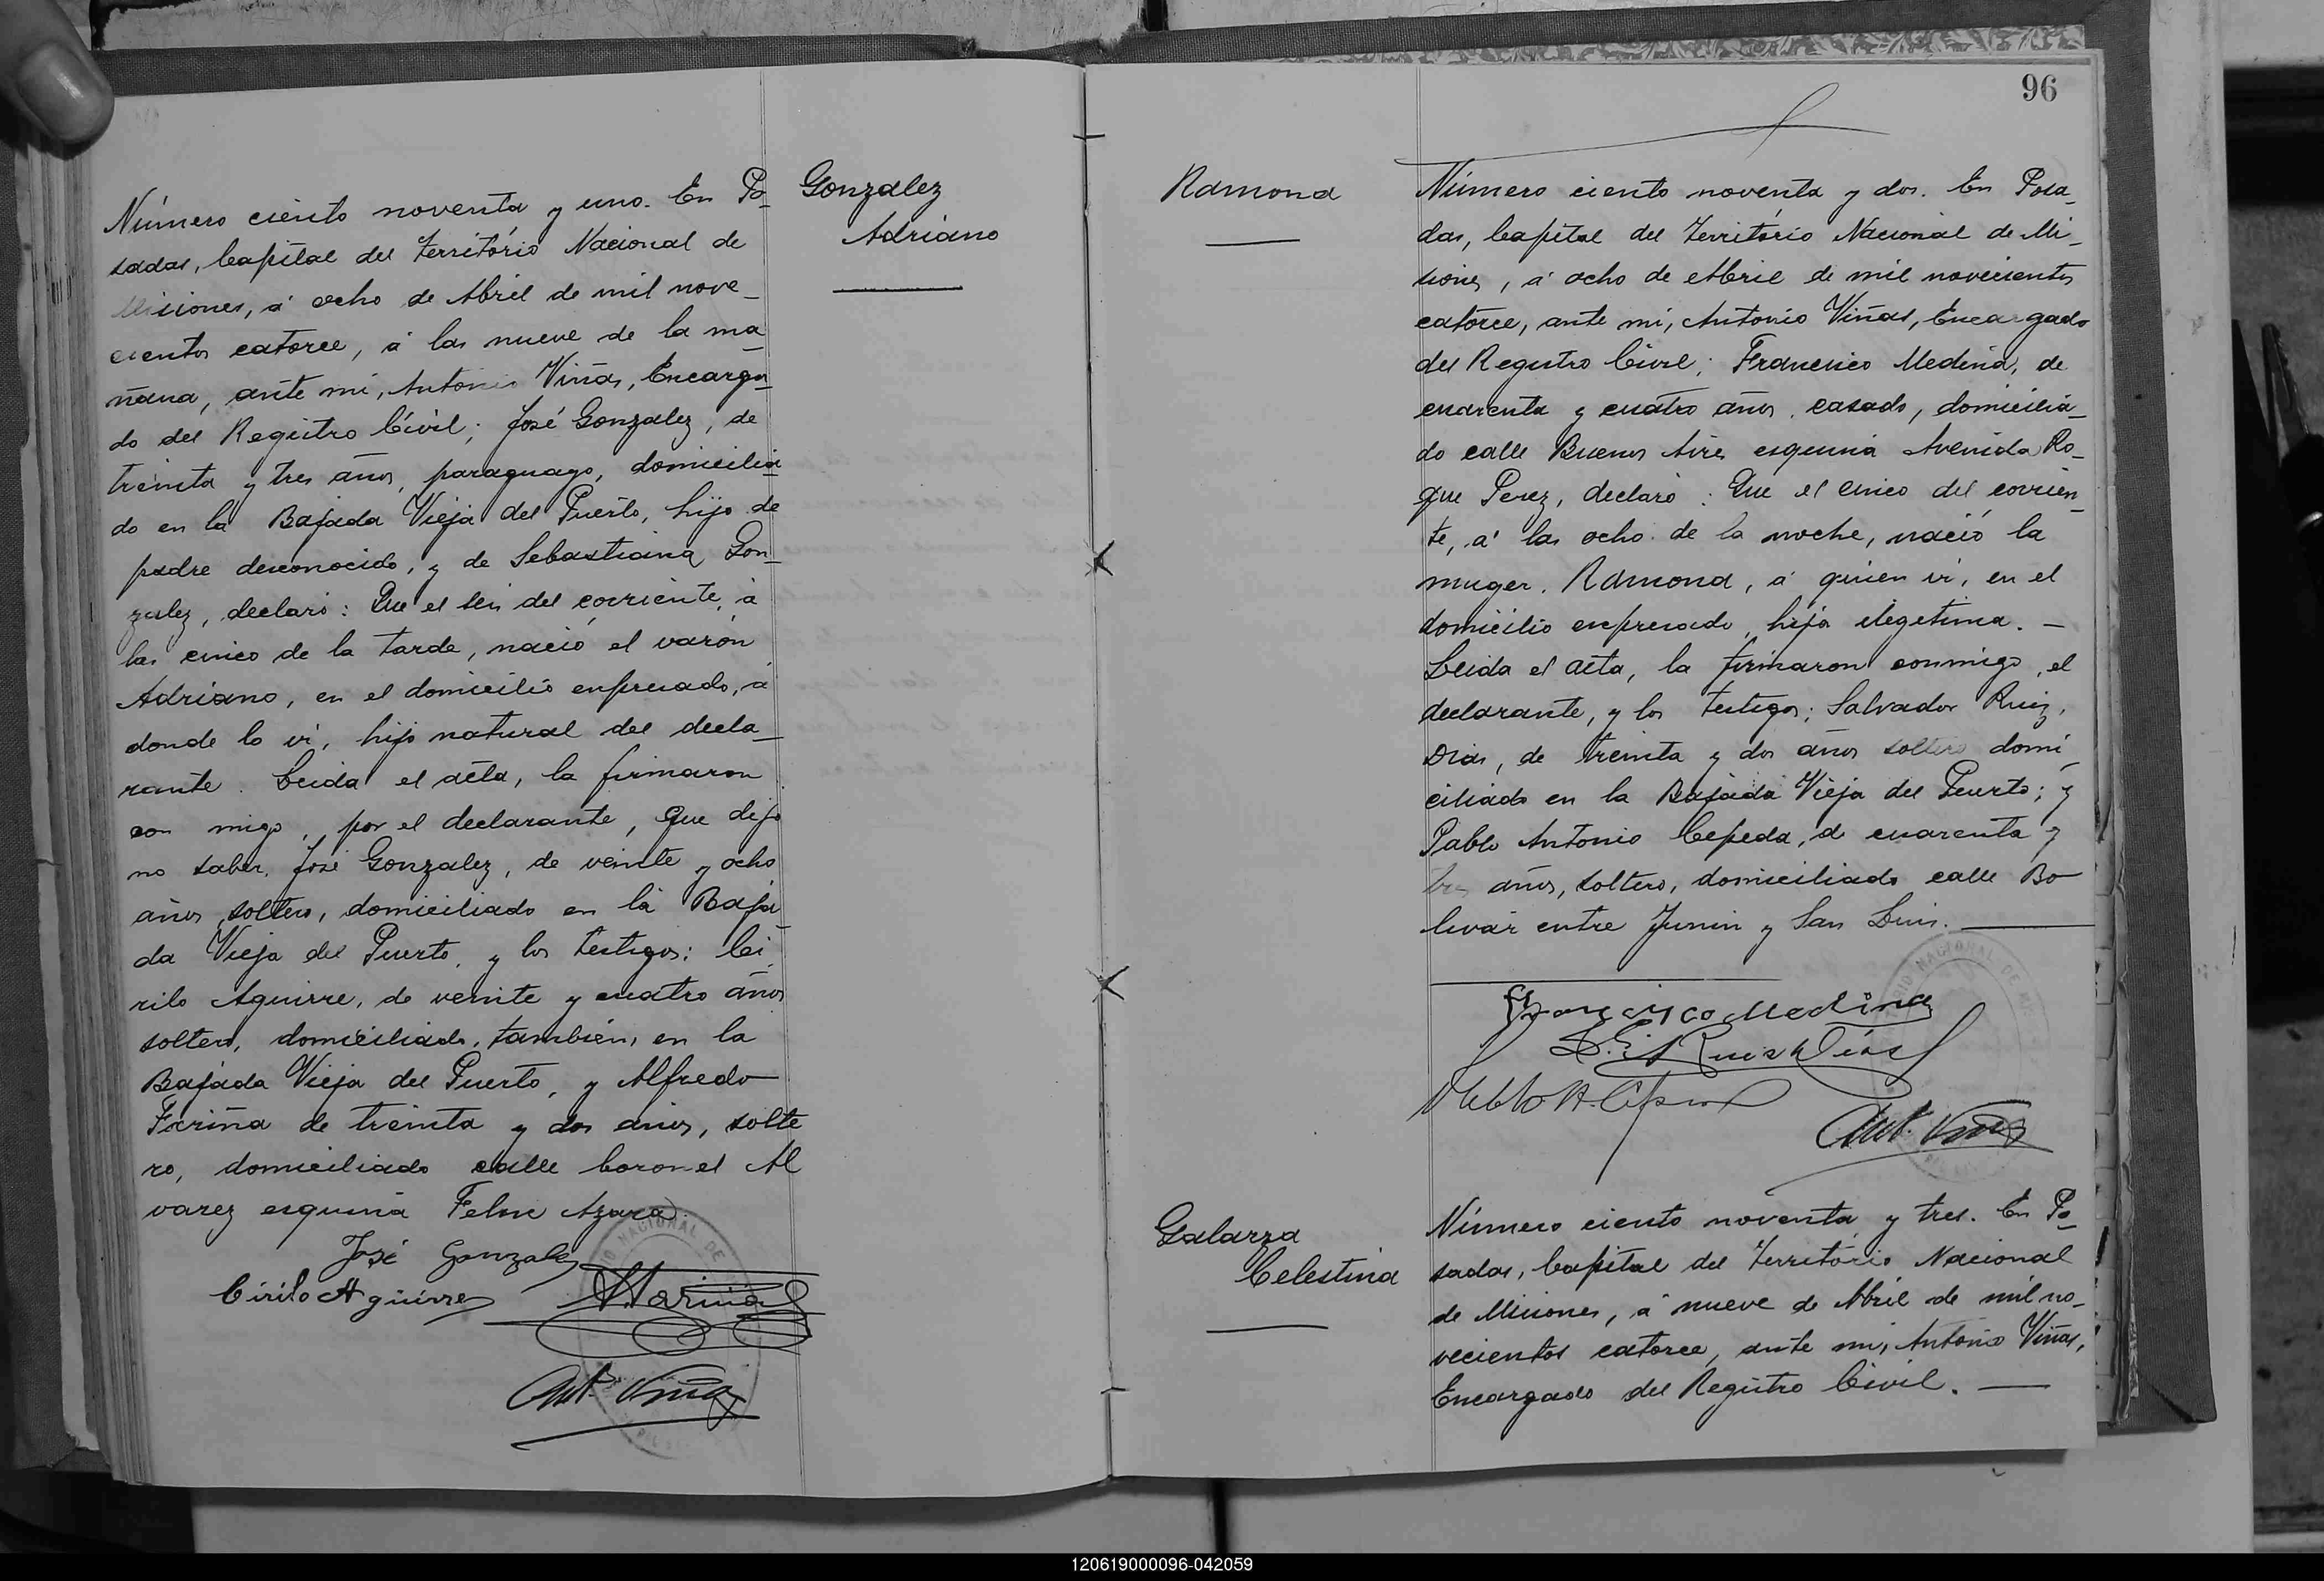 Número ciento noventa y uno. En Po_
sadas, Capital del Territorio Nacional de
Misiones, á ocho de Abril de mil nove_
cientos catorce, á las nueve de la ma_
ñana, ante mi, Antonio Viñas, Encarga_
do del Registro Civil; José Gonzalez, de
treinta y tres años, paraguayo, domicilia
do en la Bajada Vieja del Puerto, hijo de
padre desconocido, y de Sebastiana Gon_
zalez, declaró: Que el seis del corriente, á
las cinco de la tarde, nació el varón
Adriano, en el domicilio expresado, á
donde lo vi, hijo natural del decla_
rante. Leida el acta, la firmaron
con migo, por el declarante, que dijo
no saber, José Gonzalez, de veinte y ocho
años, soltero, domiciliado en la Baja_
da Vieja del Puerto, y los testigos: Ci_
rilo Aguirre, de veinte y cuatro años
soltero, domiciliado, también, en la
Bajada Vieja del Puerto, y Alfredo
Fariña de treinta y dos años, solte
ro, domiciliado calle Coronel Al
varez esquina Felix Azara.
José Gonzalez
Cirilo Aguirre
A. Fariña
Ant. Viñas
Gonzalez
Adriano
96
Ramona
Número ciento noventa y dos. En Posa_
das, Capital del Territorio Nacional de Mi_
siones, á ocho de Abril de mil novecientos
catorce, ante mi, Antonio Viñas, Encargado
del Registro Civil; Francisco Medina, de
cuarenta y cuatro años, casado, domicilia_
do calle Buenos Aires esquina Avenida Ro_
que Perez, declaró: Que el cinco del corrien_
te, á las ocho de la noche, nació la
muger, Ramona, á quien vi, en el
domicilio expresado, hija ilegetima. _
Leida el acta, la firmaron conmigo, el
declarante, y los testigos; Salvador Ruiz,
Dias, de treinta y dos años soltero domi_
ciliado en la Bajada Vieja del Puerto; y
Pablo Antonio Cepeda, de cuarenta y
tres años, soltero, domiciliado calle Bo
livar entre Junin y San Luis.
Francisco Medina
S. E. Ruiz Dias
Pablo A. Cepeda
Ant. Viñas
Galarza
Celestina
Número ciento noventa y tres. En Po_
sadas, Capital del Territorio Nacional
de Misiones, á nueve de Abril de mil no_
vecientos catorce, ante mi, Antonio Viñas,
Encargado del Registro Civil.
120619000096-042059